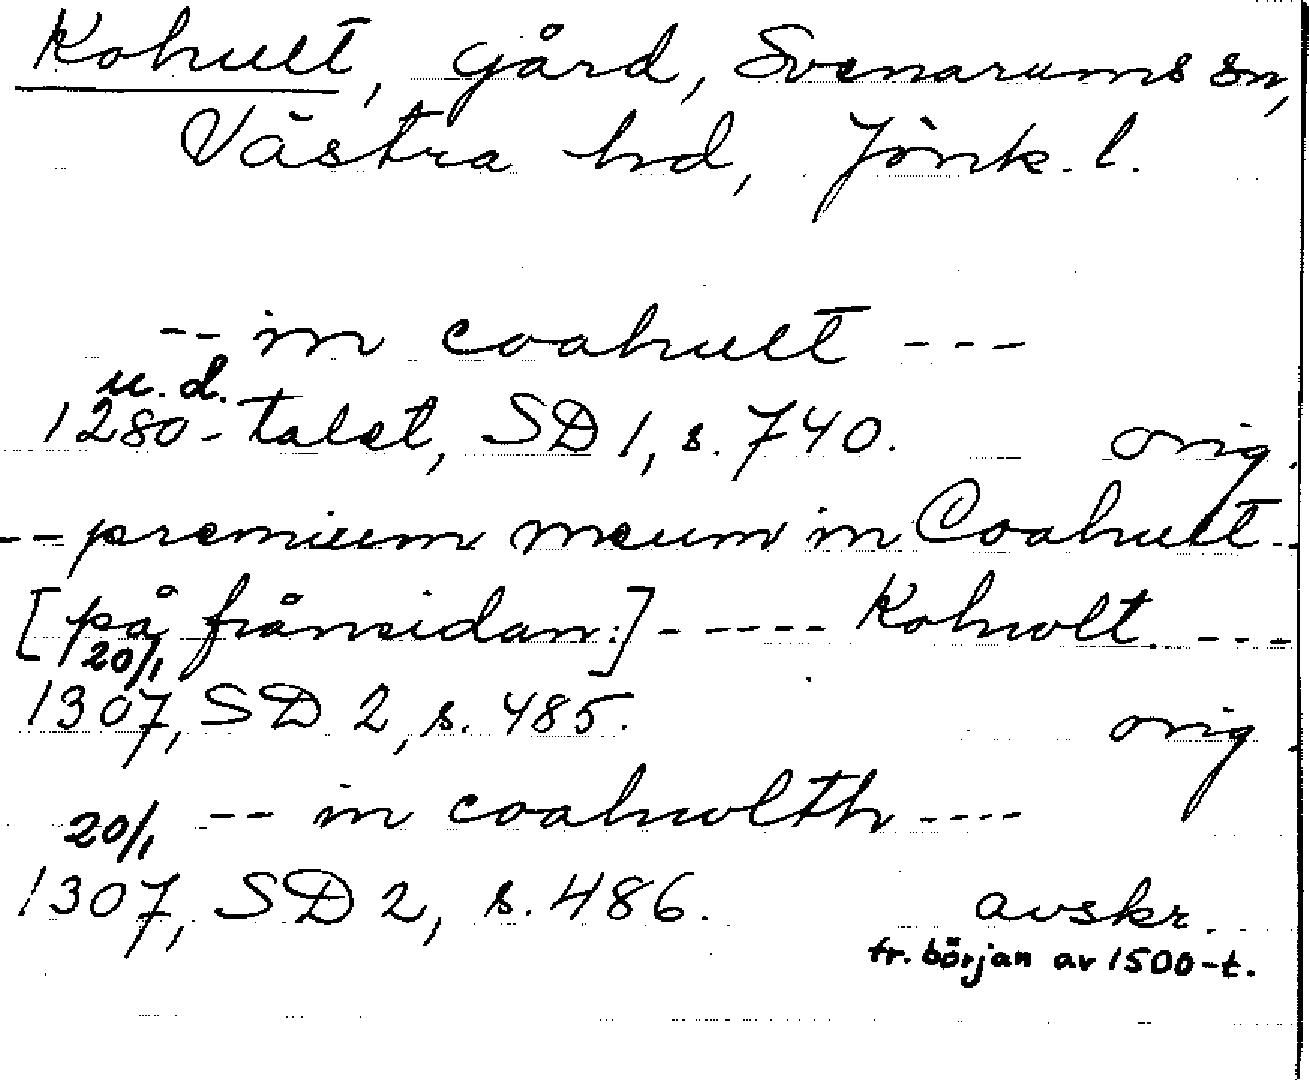 Kohult, gård, Svenarums sn,
Västra hd, Jönk. l.
-- in coahult ---
u. d.
1280-talet, SD 1, s. 740. orig.
-- premium meum in Coahult --
[på frånsidan:] ----- Kohwlt. ---
20/1
1307, SD 2, s. 485. orig.
20/1 -- in coahwlth ----
1307, SD 2, s. 486. avskr.
fr. början av 1500-t.